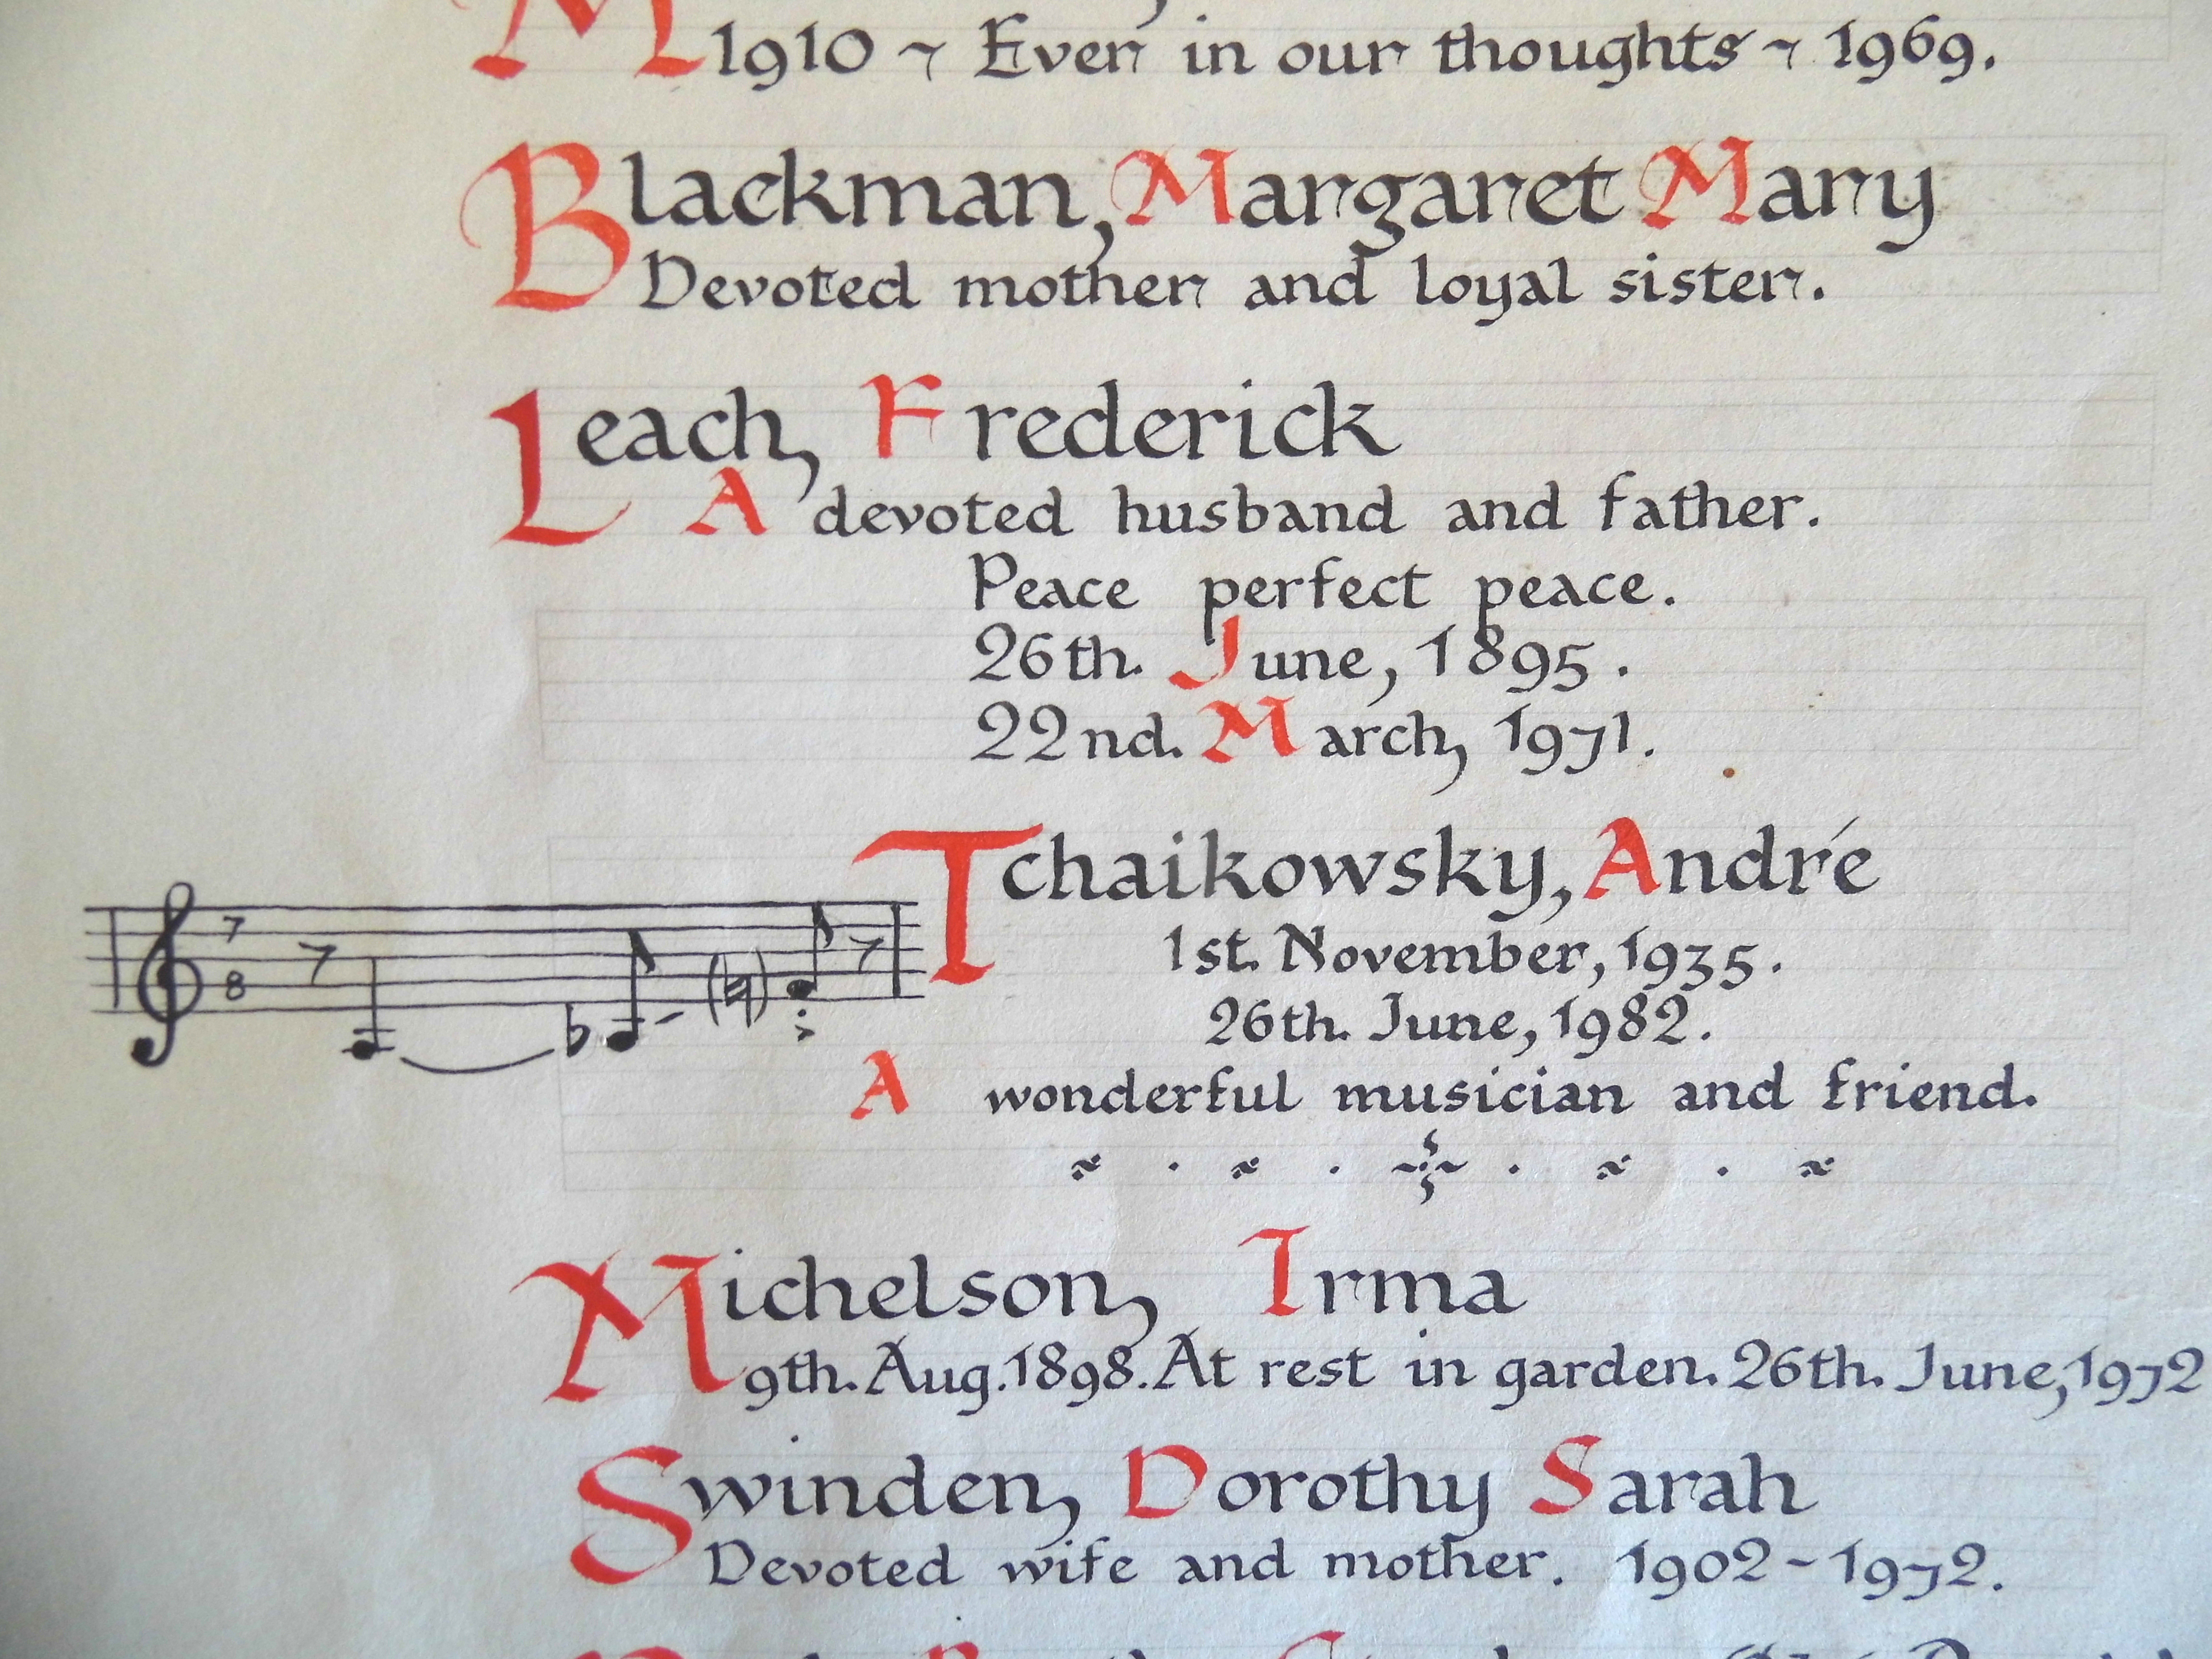 1910 ~ Ever in our thoughts ~ 1969.
Blackman, Margaret Mary
Devoted mother and loyal sister.
Leach, Frederick
A devoted husband and father.
Peace perfect peace.
26th. June, 1895.
22nd. March, 1971.
Tchaikowsky, André
7
8
1st. November, 1935.
26th. June, 1982.
A wonderful musician and friend.
Michelson, Irma
9th. Aug. 1898. At rest in garden. 26th. June, 1972
Swinden, Dorothy Sarah
Devoted wife and mother. 1902 - 1972.